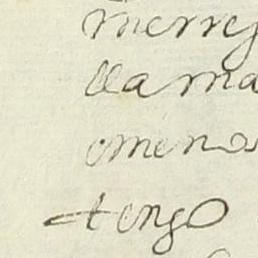 merres
llama
omeno
tengo